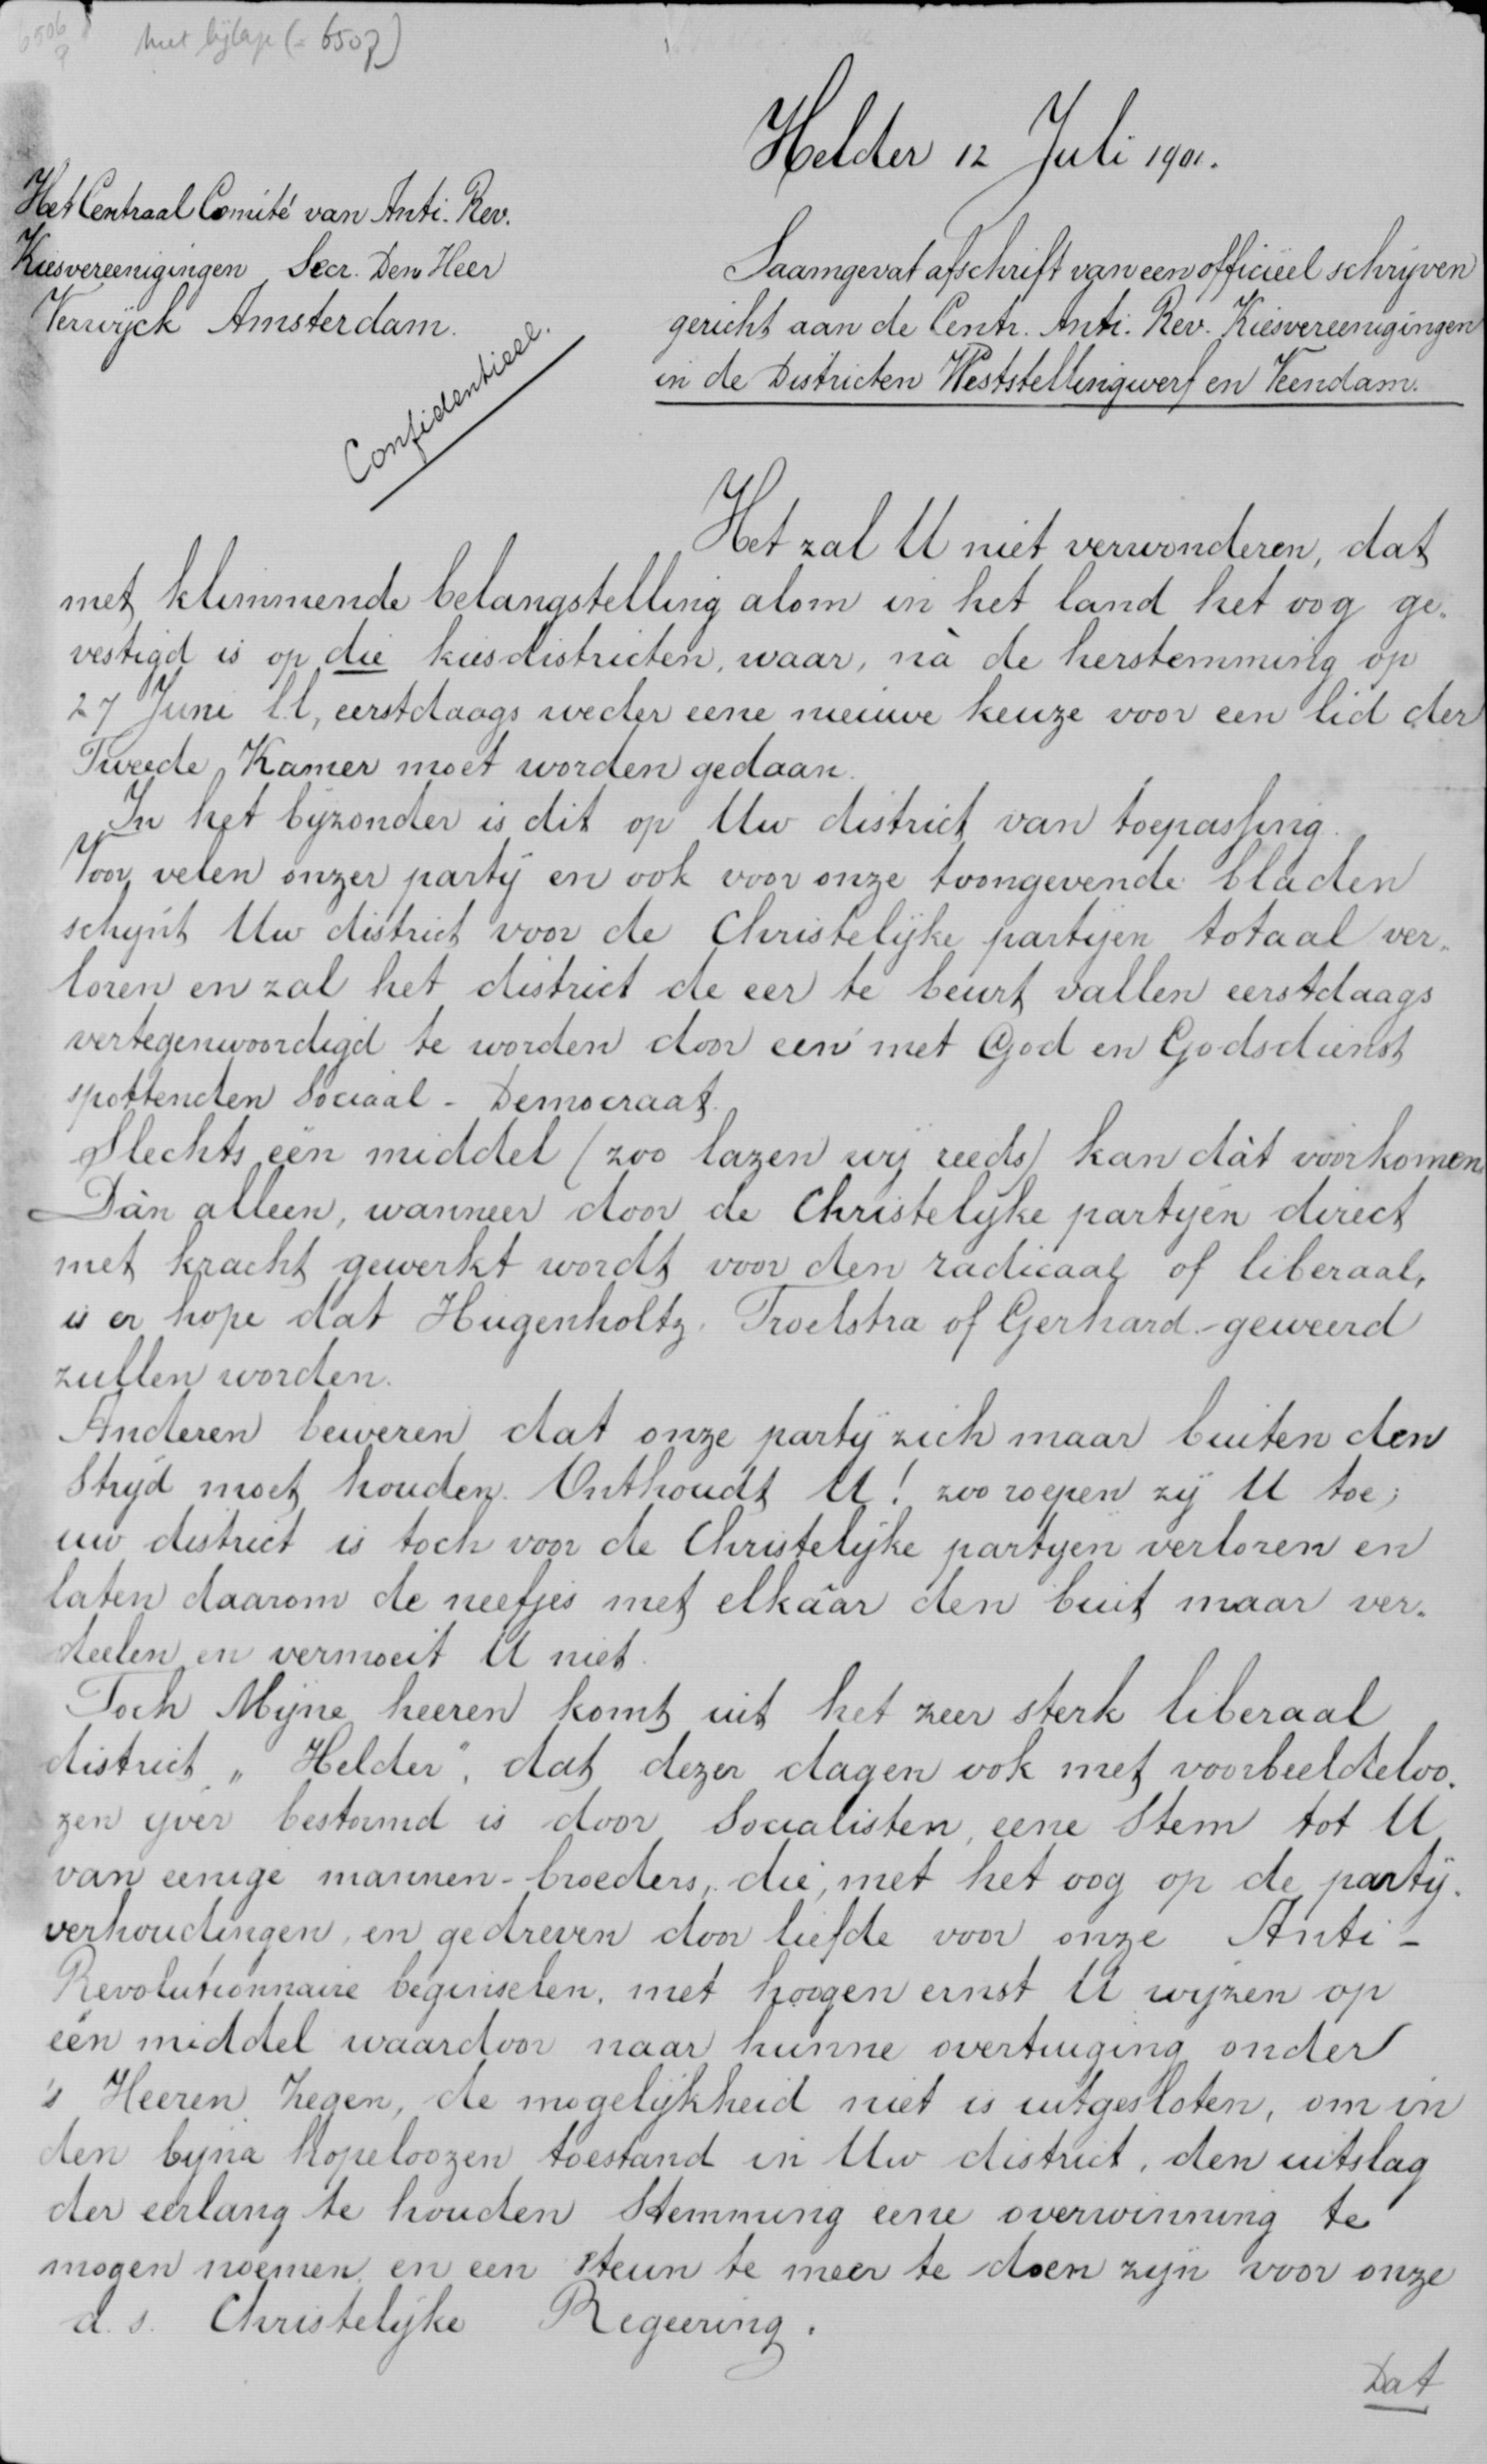 6506
met bijlage (= 6507)
Helder 12 Juli 1901.
Het Centraal Comité van Anti. Rev.
Kiesvereenigingen Secr. Den Heer
Verwijck Amsterdam.
Confidentieel.
Saamgevat afschrift van een officiëel schrijven
gericht aan de Centr. Anti. Rev. Kiesvereenigingen
in de Districten Weststellingwerf en Veendam.
Het zal U niet verwonderen, dat
met klimmende belangstelling alom in het land het oog ge-
vestigd is op die kiesdistricten, waar, nà de herstemming op
27 Juni l.l, eerstdaags weder eene nieuwe keuze voor een lid der
Tweede Kamer moet worden gedaan.
In het bijzonder is dit op Uw district van toepassing.
Voor velen onzer partij en ook voor onze toongevende bladen
schijnt Uw district voor de Christelijke partijen totaal ver-
loren en zal het district de eer te beurt vallen eerstdaags
vertegenwoordigd te worden door een met God en Godsdienst
spottenden Sociaal - Democraat.
Slechts één middel (zoo lazen wij reeds) kan dàt voorkomen.
Dàn alleen, wanneer door de Christelijke partijen direct
met kracht gewerkt wordt voor den radicaal of liberaal,
is er hope dat Hugenholtz, Troelstra of Gerhard - geweerd
zullen worden.
Anderen beweren dat onze partij zich maar buiten den
Strijd moet houden. Onthoudt U! zoo roepen zij U toe;
uw district is toch voor de Christelijke partijen verloren en
laten daarom de neefjes met elkaar den buit maar ver-
deelen en vermoeit U niet.
Toch Mijne heeren komt uit het zeer sterk liberaal
district „Helder", dat dezer dagen ook met voorbeeldeloo-
zen ijver bestormd is door Socialisten, eene Stem tot U
van eenige mannen-broeders, die, met het oog op de partij-
verhoudingen, en gedreven door liefde voor onze Anti-
Revolutionnaire beginselen, met hoogen ernst U wijzen op
één middel waardoor naar hunne overtuiging onder
's Heeren Zegen, de mogelijkheid niet is uitgesloten, om in
den bijna hopeloozen toestand in Uw district, den uitslag
der eerlang te houden Stemming eene overwinning te
mogen noemen en een Steun te meer te doen zijn voor onze
d. s. Christelijke Regeering.
Dat